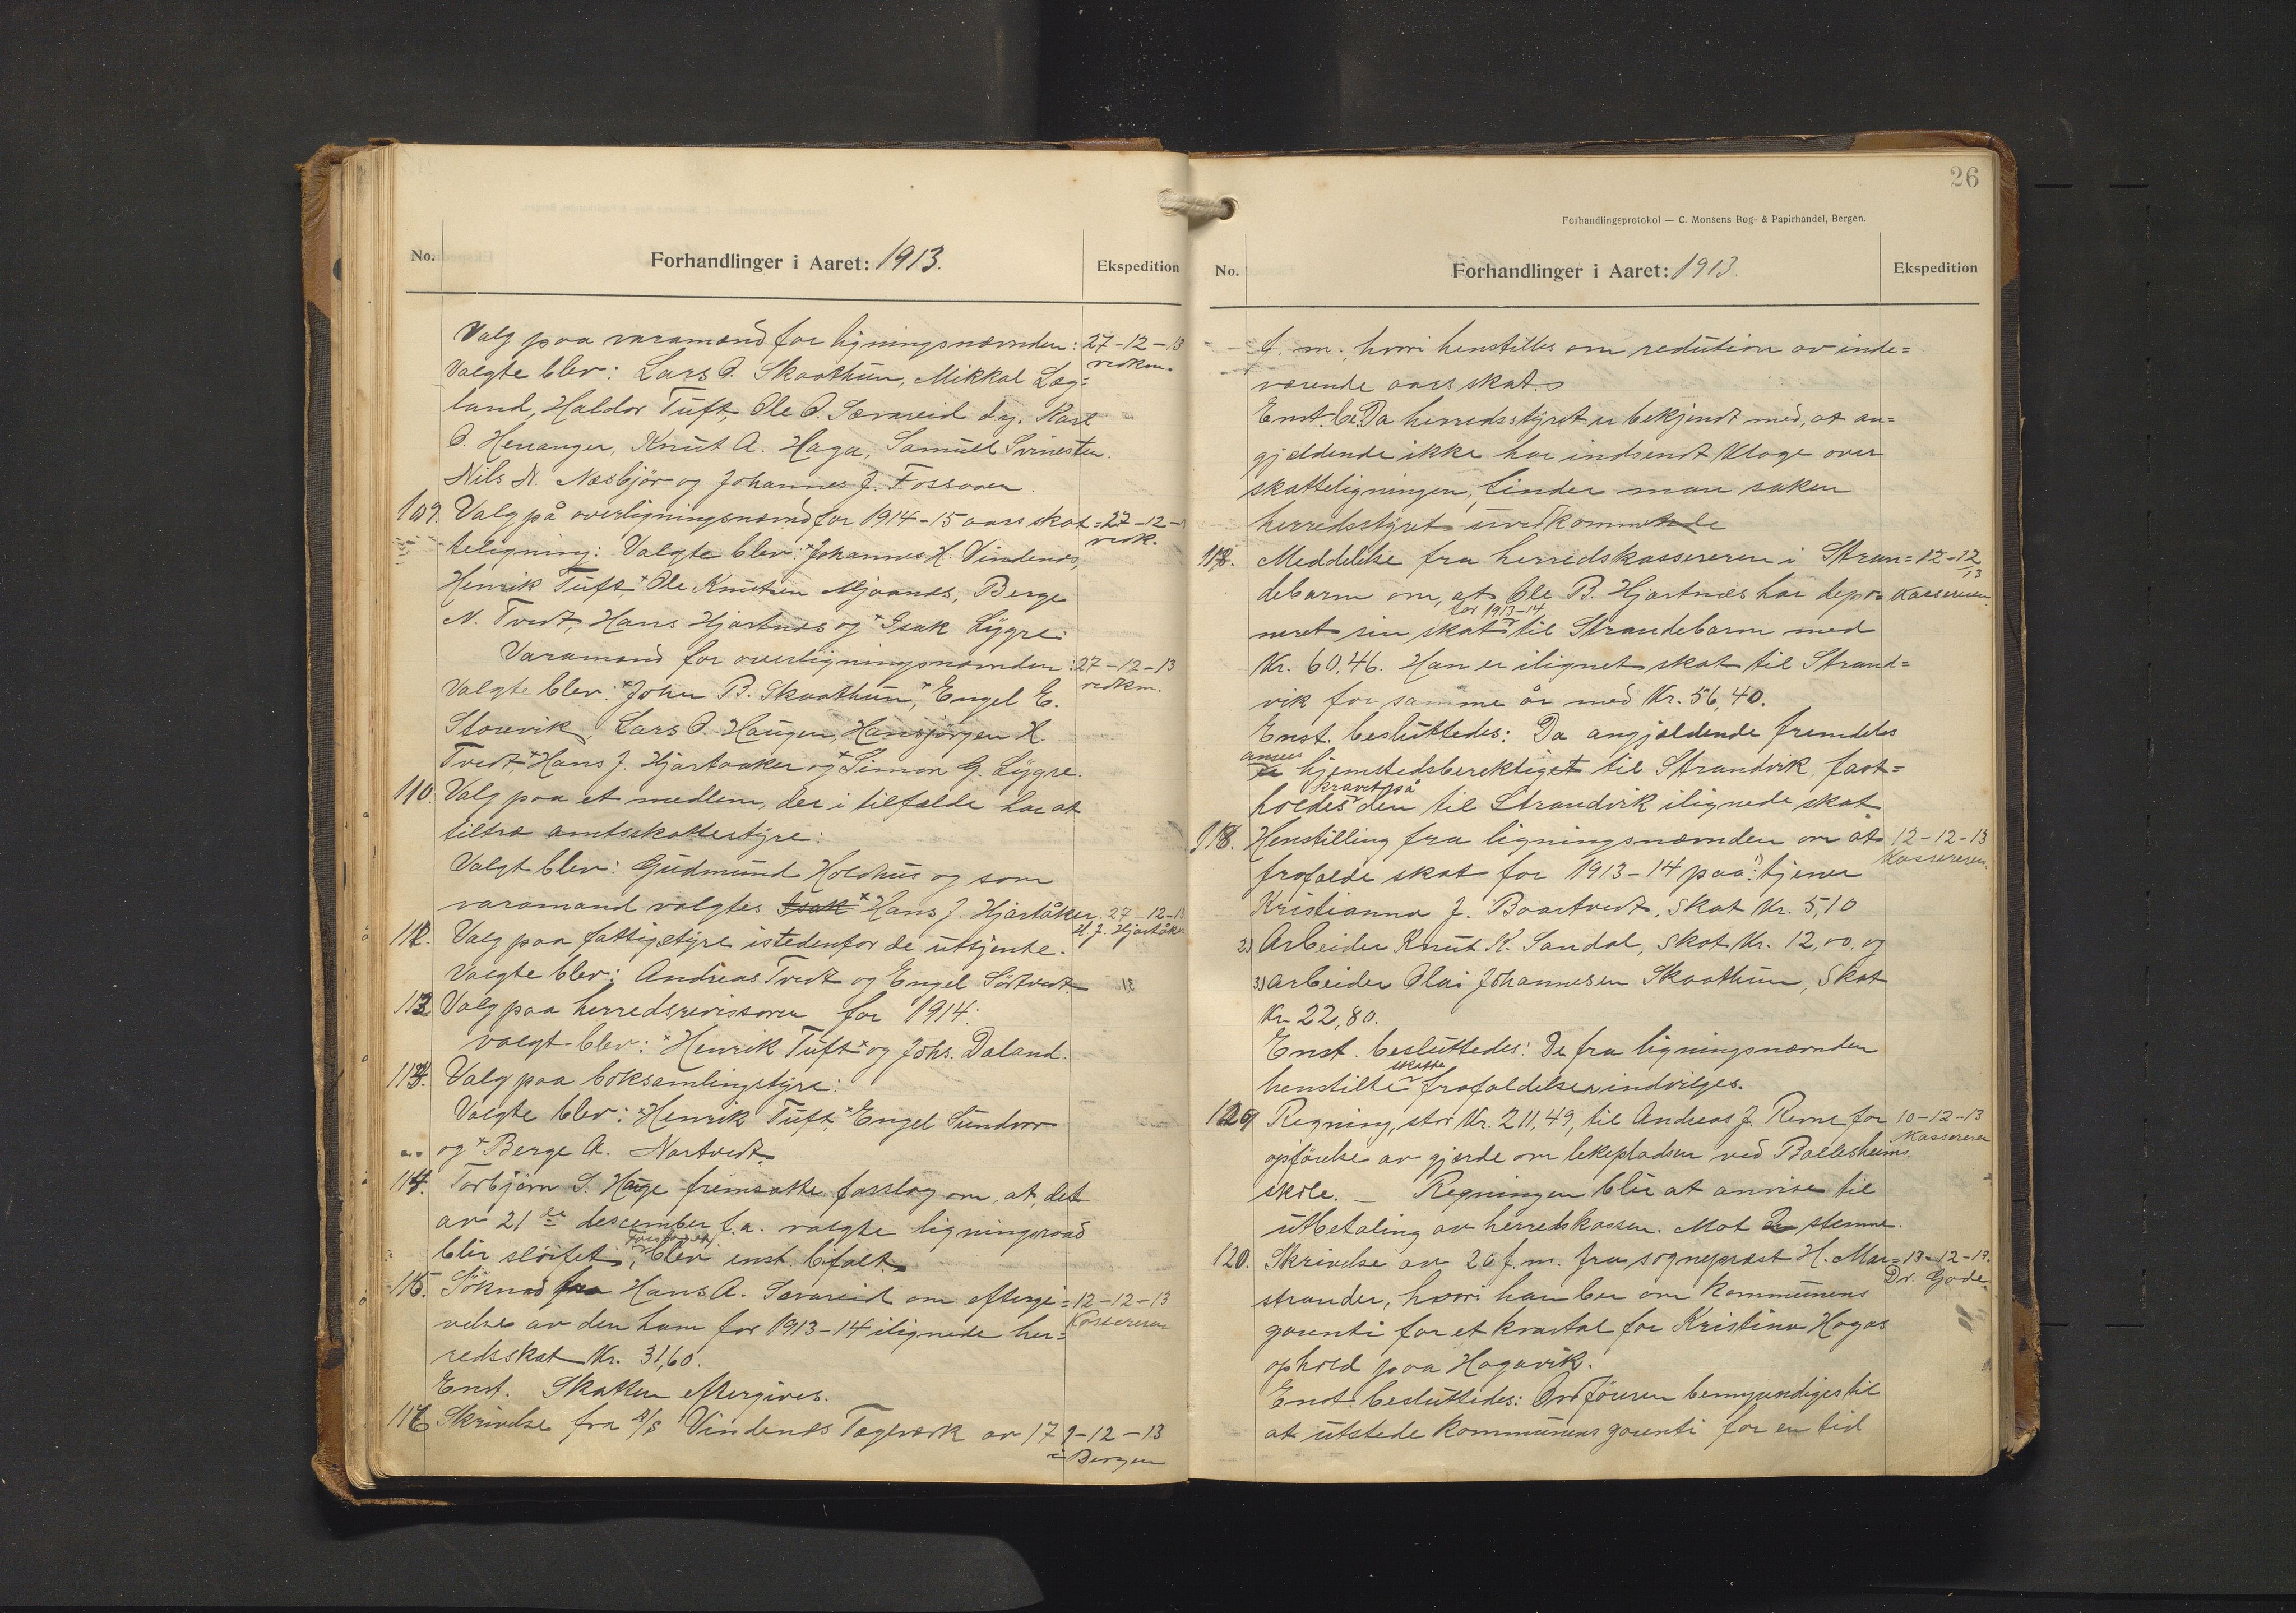 No.
Forhandlinger i Aaret: 1913.
Ekspedition
Valg paa varamænd for ligningsnævnden: 27-12-13
vedkm.
Valgte blev: Lars O. Skaathun, Mikkal Læg=
land, Haldor Tuft, Ole O. Sævareid d.y. Karl
O. Henanger, Knut A. Haga, Samuel Svinesten.
Nils N. Næsbjør og Johannes J. Fossaaen.
109. Valg på overligningsnævnd for 1914-15 aars skat= 27-12-
vedk.
teligning: Valgte blev: Johannes H. Vindenes,
Henrik Tuft, Ole Knutsen Mjaanes, Berge
N. Tvedt, Hans Hjartnes og Isak Lygre.
Varamænd for overligningsnævnden: 27-12-13
vedkm.
Valgte blev: John B. Skaathun, Engel E.
Storvik, Lars O. Haugen, Hansjörgen H.
Tvedt, Hans J. Hjartaaker og Simon G. Lygre.
110. Valg paa et medlem, der i tilfælde har at
tiltræ amtsskattestyre:
Valgt blev: Gudmund Holdhus og som
varamand valgtes Isak Hans J. Hjartåker. 27-12-13
H. J. Hjartåker
111. Valg paa fattigstyre istedenfor de uttjente.
Valgte blev: Andreas Tvedt og Engel Sörtvedt.
112. Valg paa herredsrevisorer for 1914:
valgt blev: Henrik Tuft og Johs. Daland.
113. Valg paa boksamlingstyre:
Valgte blev: Henrik Tuft, Engel Sundvor
og Berge A. Nortvedt.
114. Torbjørn S. Hauge fremsatte forslag om, at det
av 21de descember f.a. valgte ligningsraad
blir sløifet; Forslaget blev enst. bifalt.
115. Söknad fra Hans A. Sævareid om eftergi= 12-12-13
Kassereren
velse av den ham for 1913-14 ilignede her=
redsskat Kr. 31,60.
Enst. Skatten eftergives.
116 Skrivelse fra A/S Vindenes Togverk av 17 9-12-13
i Bergen
26
Forhandlingsprotokol — C. Monsens Bog- & Papirhandel, Bergen.
No.
Forhandlinger i Aaret: 1913.
Ekspedition
f. m., hvori henstilles om redution av inde=
værende aars skat.
Enst. be. Da herredsstyret er bekjendt med, at an=
gjældende ikke har indsendt klage over
skatteligningen, finder man saken
herredsstyret uvedkommende
117. Meddelelse fra herredskassereren i Stran= 12-12
13
debarm om, at Ole B. Hjartnæs har depo= Kassereren
neret sin skat for 1913-14 til Strandebarm med
Kr. 60,46. Han er ilignet skat til Strand=
vik for samme år med Kr. 56,40.
Enst. besluttedes: Da angjældende fremdeles
ansees
er hjemstedsberektiget til Strandvik, fast=
holdes kravet på den til Strandvik ilignede skat
118. Henstilling fra ligningsnævnden om at 12-12-13
Kassereren
frafalde skat for 1913-14 paa: 1) tjener
Kristianna J. Baartvedt, skat Kr. 5,10
2) Arbeider Knut K. Sandal, skat Kr. 12,00, og
3) arbeider Olai Johannesen Skaathun, skat
Kr. 22,80.
Enst. besluttedes: De fra ligningsnævnden
henstilte skatte frafaldelser indvilges.
119 Regning, stor Kr. 211,49, til Andreas J. Reme for 10-12-13
Kassereren
opförelse av gjærde om lekepladsen ved Ballesheims
skole. — Regningen blir at anvise til
utbetaling av herredskassen. Mot 2 stemme.
120. Skrivelse av 26 f.m. fra sogneprest H. Mar= 13-12-13.
Dr. Gade
strander, hvori han ber om kommunens
garanti for et kvartal for Kristina Hagas
ophold paa Hagavik.
Enst. besluttedes: Ordföreren bemyndiges til
at utstede kommunens garenti for en tid